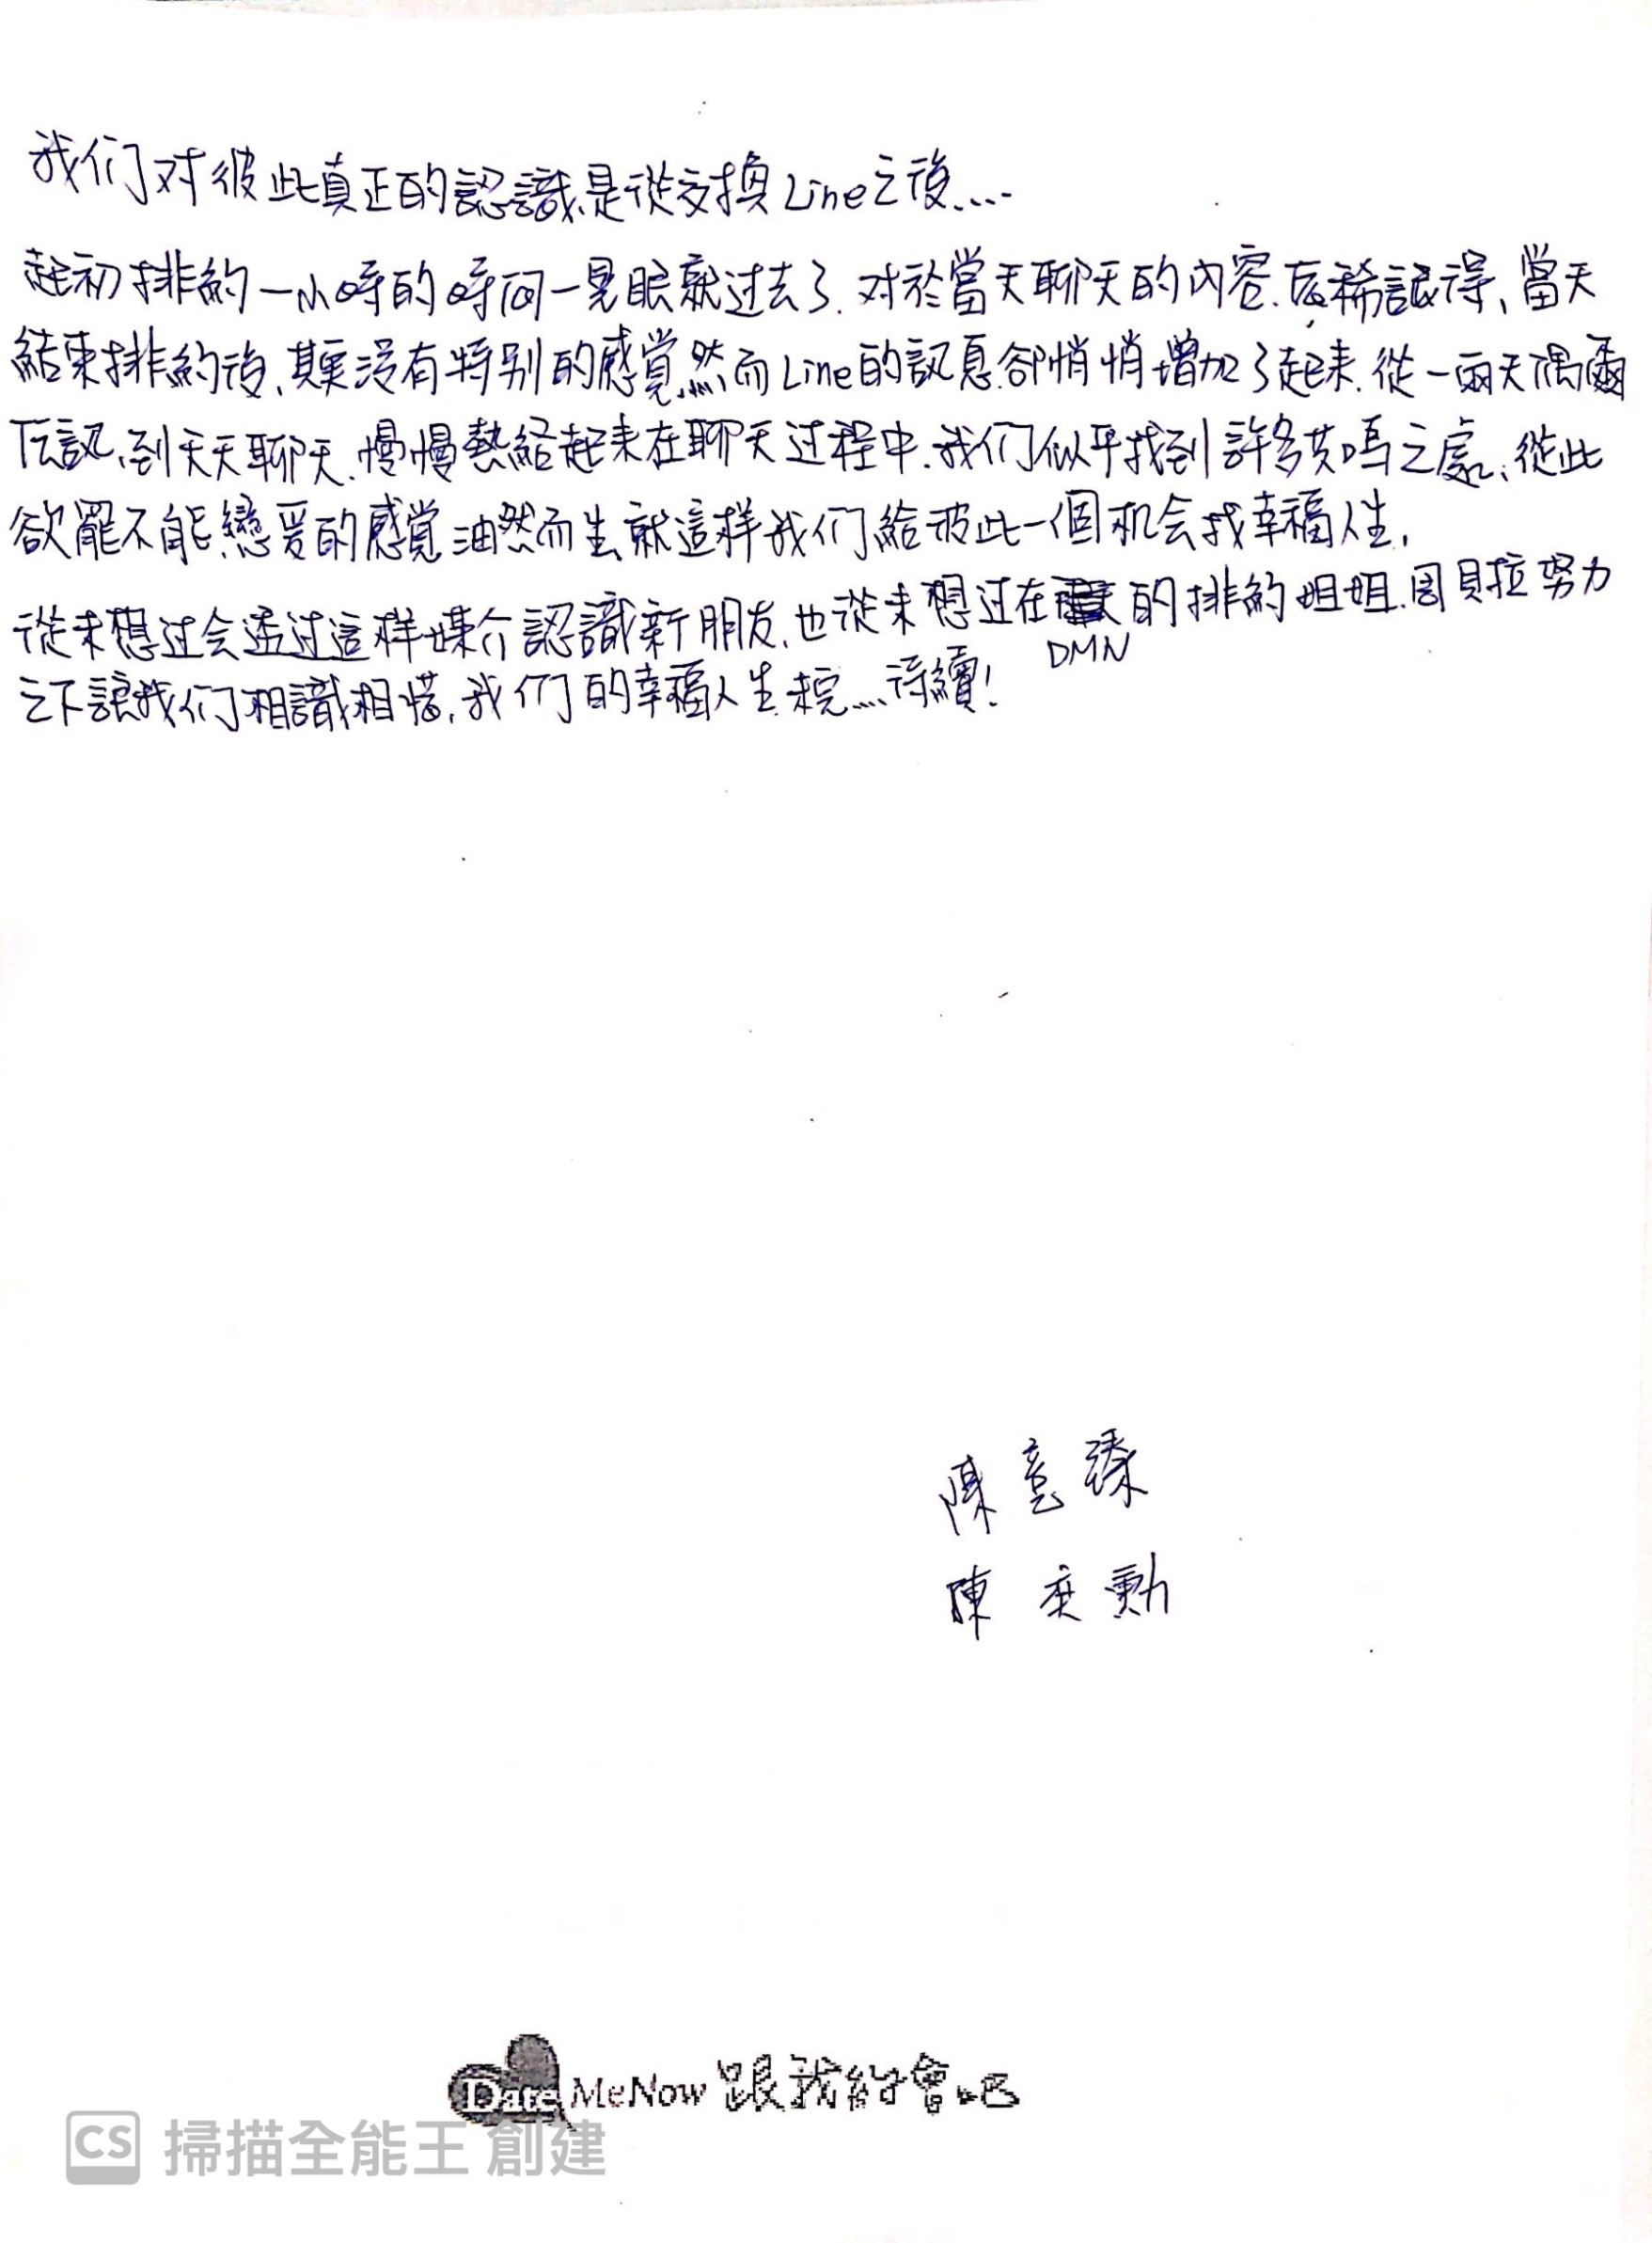 我们对彼此真正的認識、是從交換Line之後....
起初排約一小時的時间一晃眼就过去了.对於當天聊天的內容.依稀記得、當天
結束排約後、其實沒有特別的感覺、然而Line的訊息.卻悄悄增加了起来.從一兩天偶爾
伝訊、到天天聊天.慢慢熱絡起来在聊天过程中.我们似乎找到許多共鳴之處、從此
欲罷不能、戀爱的感覺油然而生、就這样我们給彼此一個机会找幸福人生.
從未想过会透过這样媒介認識新朋友.也從未想过在DMN的排約姐姐.周貝拉努力
之下讓我们相識相惜.我们的幸福人生.未完....待續!
陳意臻
陳奕勳
Date MeNow 跟我約會吧
CS 掃描全能王 創建